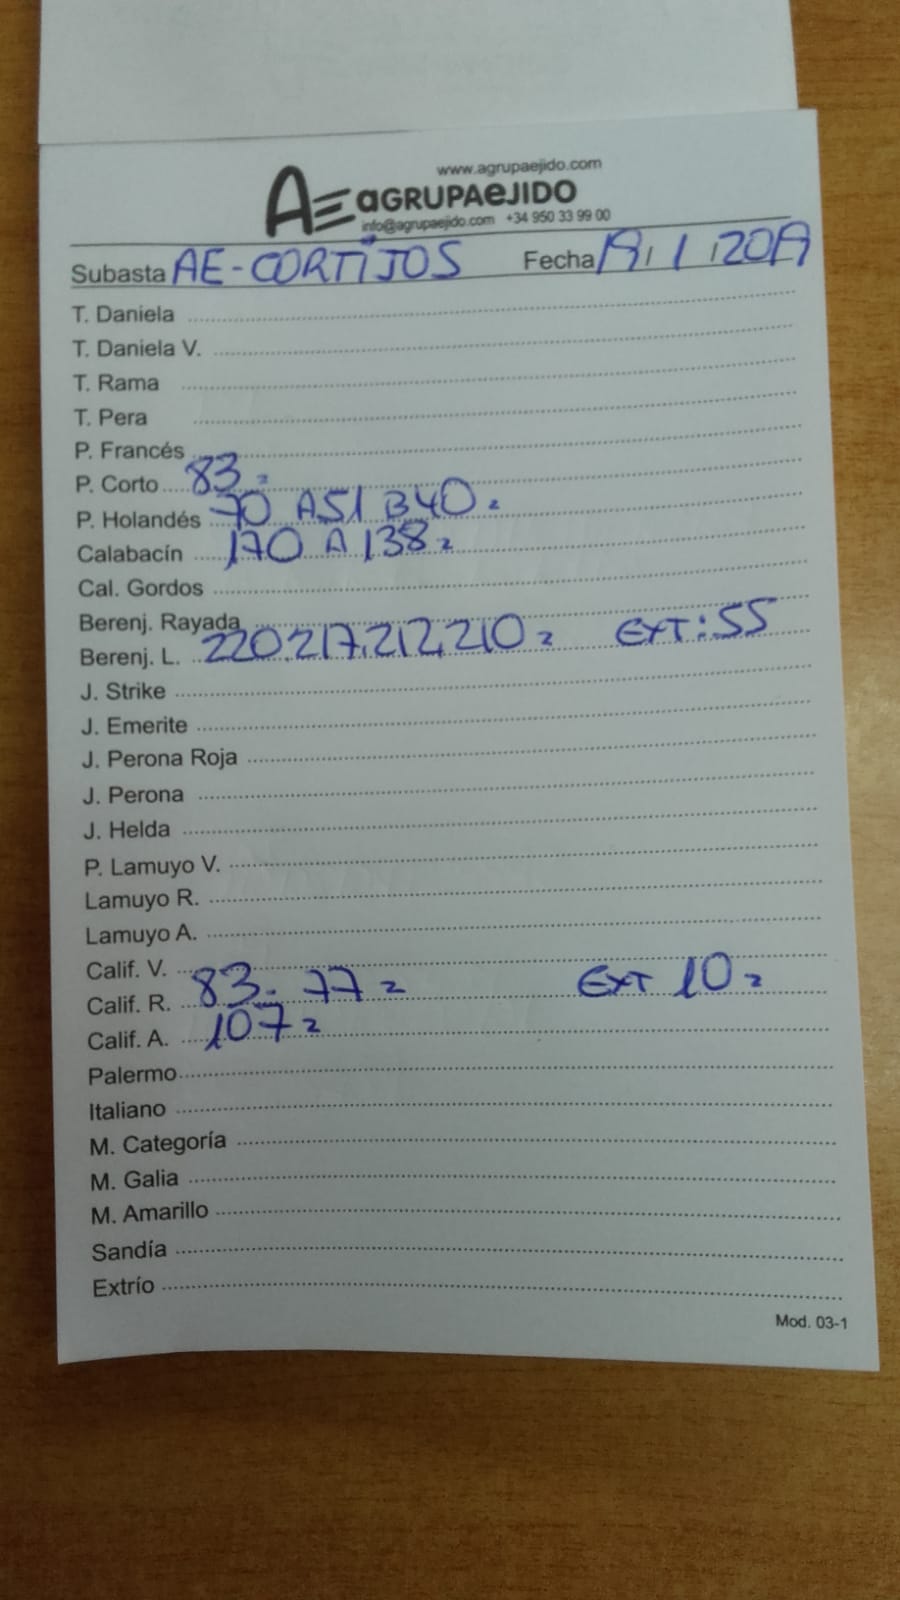 www.agrupaejido.com
AE aGRUPAeJIDO
info@agrupaejido.com +34 950 33 99 00
Subasta AE-CORTIJOS Fecha 19/1/2019
T. Daniela
T. Daniela V.
T. Rama
T. Pera
P. Francés
P. Corto 83 =
P. Holandés 70 A51 B40 =
Calabacín 170 A 138 =
Cal. Gordos
Berenj. Rayada
Berenj. L. 220.217.212.210 = EXT: 55
J. Strike
J. Emerite
J. Perona Roja
J. Perona
J. Helda
P. Lamuyo V.
Lamuyo R.
Lamuyo A.
Calif. V.
Calif. R. 83- 77 = EXT 10 =
Calif. A. 107 =
Palermo
Italiano
M. Categoría
M. Galia
M. Amarillo
Sandía
Extrío
Mod. 03-1